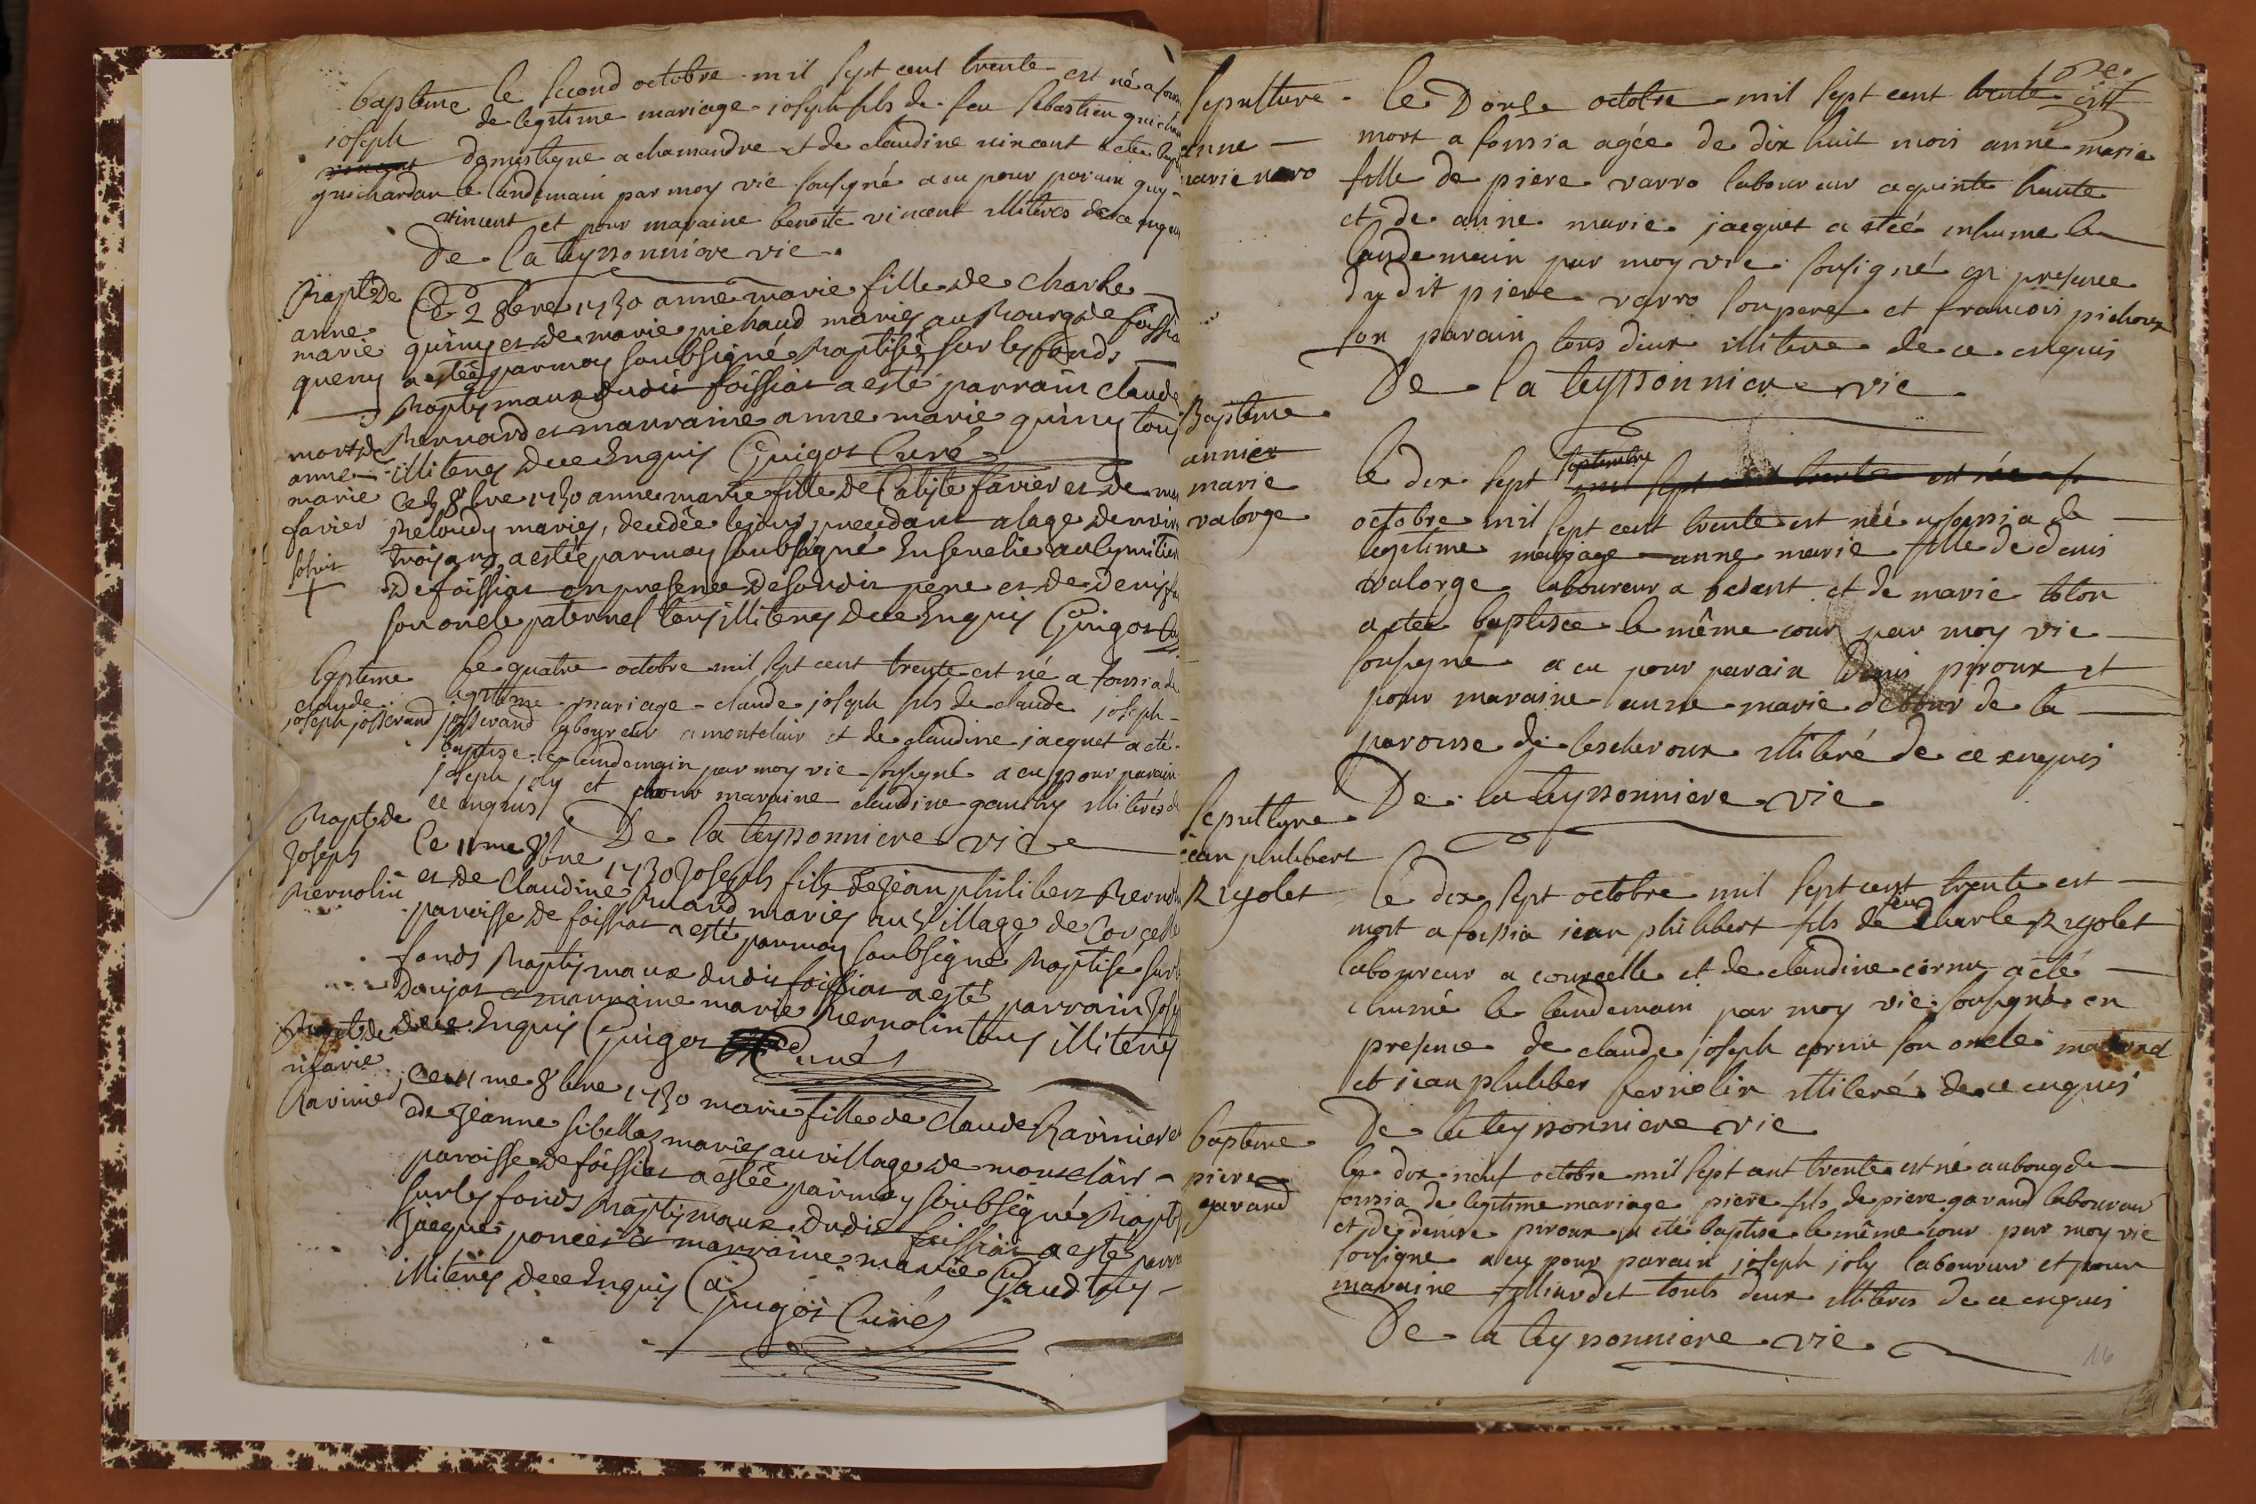 baptême le second octobre mil sept cent trente est né a
joseph de legitime mariage joseph fils de feu sebastien
domestique a chamandre et de claudine vincent a ete
guichardan le lendemain par moy vic sousigné a eu pour parain guy
vincent et pour maraine benoite vincent illiteres de ce enquis
De la teyssonniere vic
Bapt de Ce 2 8bre 1730 anne marie fille de Charle
anne quiny et de marie pichaud mariés au Bourg de foissia
marie a estée par moy soubsigné Baptisée sur les fonds
queny Baptismaux dudit foissiat a esté parrain claude
Bernard et marraine anne marie quiny tous
mort de illiteres de ce Enquis Guigot Curé
anne Ce 3 8bre 1730 anne marie fille de Batiste favier et de
marie
favier mariés, decedée le jour precedant a lage denviron
trois ans, a estée par moy soubsigné Ensevelie au Cymitiere
De foissiat en presence de sondit pere et de denis
son oncle paternel tous illiteres de ce Enquis Guigot
baptême Le quatre octobre mil sept cent trente est né a foissia de
claude legitime mariage claude joseph fils de claude joseph
joseph josserand josserand laboureur a montclair et de claudine jacquet a eté
baptize le lendemain par moy vic sousigné a eu pour parain
joseph joly et pour maraine claudine gauthy illiterés de
ce enquis De la teyssonniere vic
Bapt de Ce 11me 8bre 1730 Joseph fils de Jean philibert
Joseph et de Claudine Buand mariés au Village de Corcelle
Bernolin paroisse de foissiat a esté par moy soubsigné Baptisé sur
fonds Baptismaux dudit foissiat a esté parrain
Daujat et marraine marie Bernolin tous illiteres
Bapt de De ce Enquis Guigot Curé
marie Ce 11me 8bre 1730 marie fille de Claude Ravinier et
Ravinie de Jeanne sibelle mariés au village de montclair
paroisse de foissiat a estée par moy soubsigné
sur les fonds Baptismaux dudit foissiat a esté
jacque poncet et marraine marie Gaud tous
illiteres de ce Enquis Guigot Curé
sepulture le Douse octobre mil sept cent trente est
anne mort a foissia agée de dix huit mois anne marie
marie varo fille de piere varro laboureur a quinte haute
et de anne marie jacquet a etée inhume le
landemain par moy vic sousigné en presence
dudit piere varro son pere et francois
son parain tous deux illitere de ce enquis
De la teyssonniere vic
Bapteme
annier le dix sept septembre mil sept cent trente est née a
marie octobre mil sept cent trente est née a foissia de
valorge legitime mariage anne marie fille de denis
valorge laboureur a bedant et de marie tolon
a etée baptisée le même jour par moy vic
sousigné a eu pour parain Denis piroux et
pour maraine anne marie debour de la
paroisse de lescheroux illiteré de ce enquis
De la teyssonniere vic
sepulture
jean philibert
Rigolet le dix sept octobre mil sept cent trente est
mort a foissia jean philibert fils de feu charle Rigolet
laboureur a courcelle et de claudine cornu a eté
ihumé le landemain par moy vic sousigné en
presence de claude joseph cornu son oncle maternel
et jean philiber fernolin illiteré de ce enquis
De la teyssonniere vic
bapteme le dix neuf octobre mil sept cent trente est né au boug de
piere foissia de legitime mariage piere fils de piere gavand laboureur
gavand et de denise piroux a ete baptise le même jour par moy vic
sousigne a eu pour parain joseph joly laboureur et pour
maraine touts deux illiteres de ce enquis
De la teyssonniere vic
16